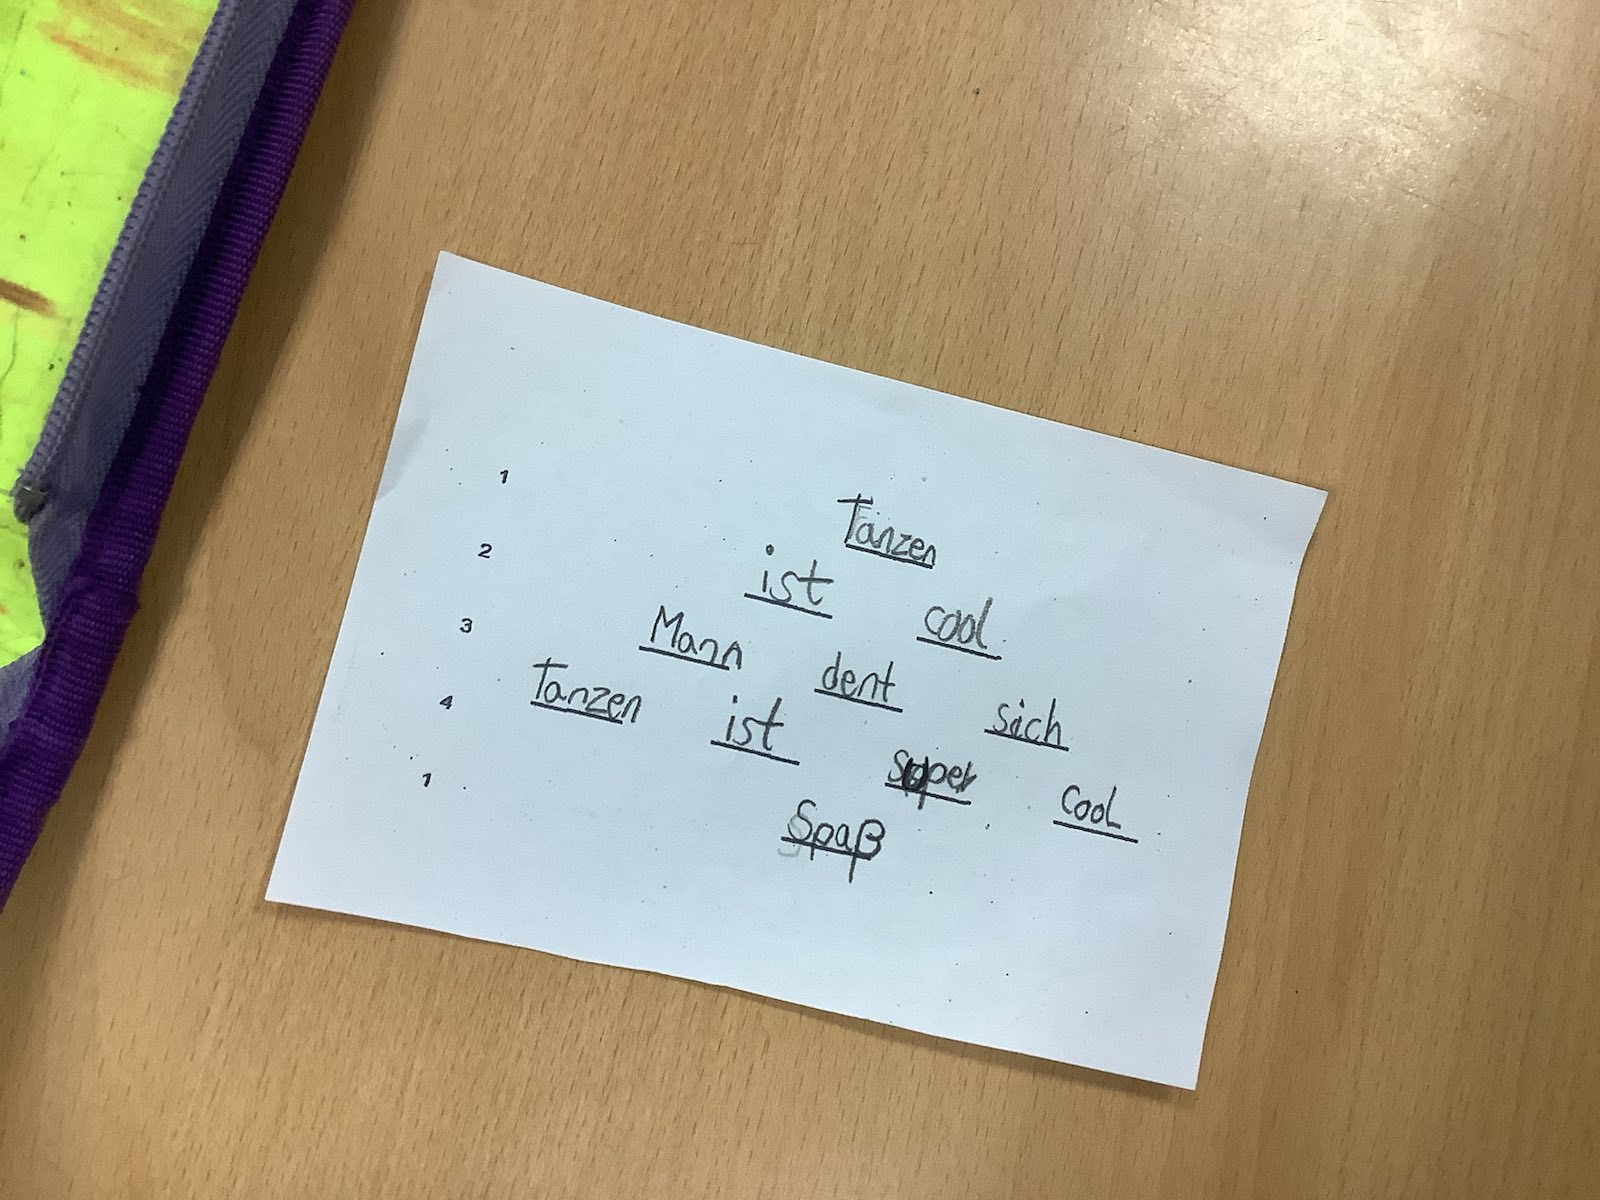 1 Tanzen
2 ist cool
3 Mann dent sich
4 Tanzen ist super cool
1 Spaß